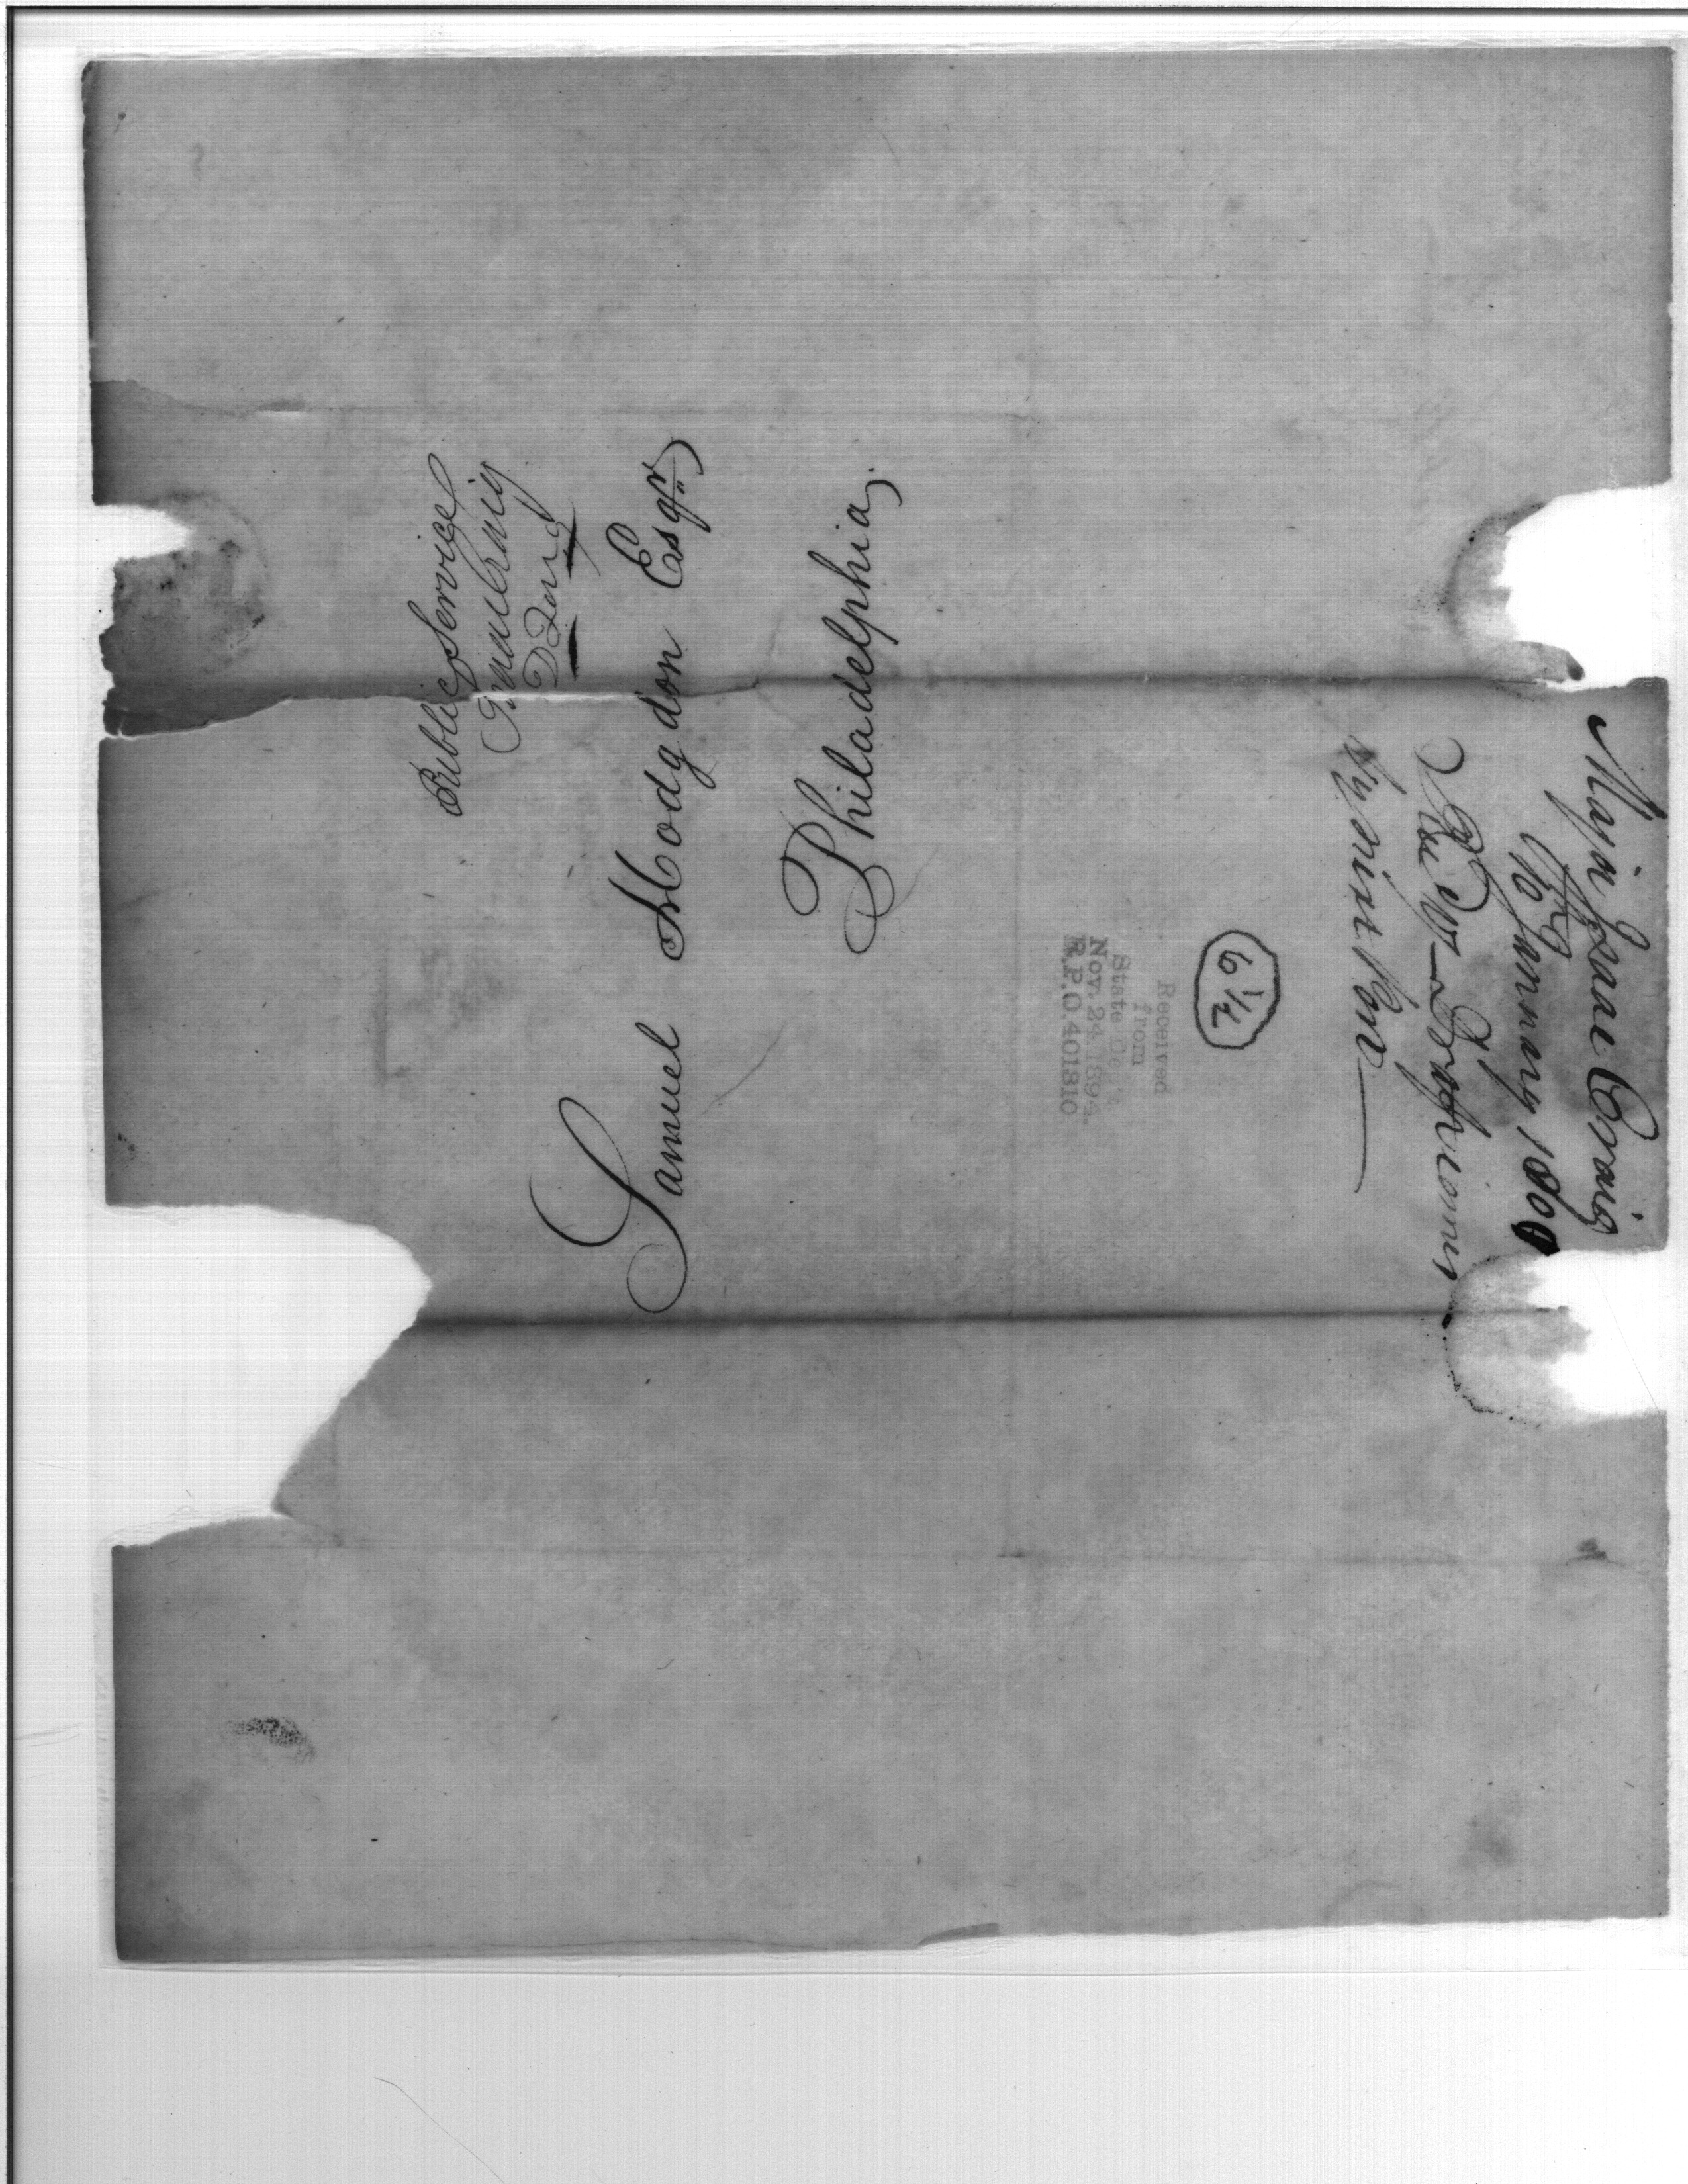 Public Service
Isaac Craig
D Qr M G
Samuel Hodgdon Esqr.
Philadelphia
6 1/2
Received
from
State De
Nov. 24, 1894.
R.P.O. 401810
Major Isaac Craig
10 January 1800